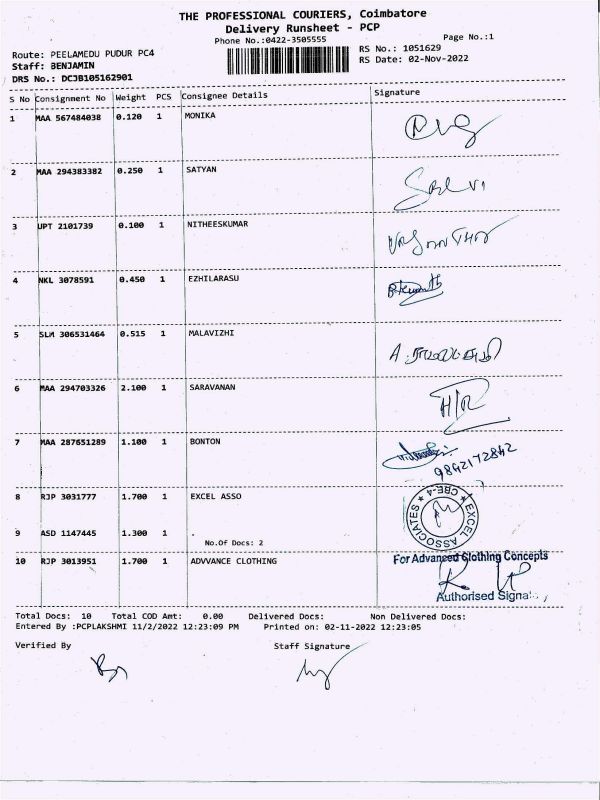 THE PROFESSIONAL COURIERS, Coimbatore
Delivery Runsheet - PCP
Phone No.:0422-3505555
Page No.:1
Route: PEELAMEDU PUDUR PC4
RS No.: 1051629
Staff: BENJAMIN
RS Date: 02-Nov-2022
DRS No.: DCJB105162901
S No Consignment No Weight PCS Consignee Details Signature
1 MAA 567484038 0.120 1 MONIKA
2 MAA 294383382 0.250 1 SATYAN
3 UPT 2101739 0.100 1 NITHEESKUMAR
4 NKL 3078591 0.450 1 EZHILARASU
5 SLM 306531464 0.515 1 MALAVIZHI
6 MAA 294703326 2.100 1 SARAVANAN
7 MAA 287651289 1.100 1 BONTON
9842172842
8 RJP 3031777 1.700 1 EXCEL ASSO
EXCEL ASSOCIATES ★ CBE-4 ★
9 ASD 1147445 1.300 1
No.Of Docs: 2
10 RJP 3013951 1.700 1 ADVVANCE CLOTHING
For Advanced Clothing Concepts
Authorised Signa
Total Docs: 10 Total COD Amt: 0.00 Delivered Docs: Non Delivered Docs:
Entered By :PCPLAKSHMI 11/2/2022 12:23:09 PM Printed on: 02-11-2022 12:23:05
Verified By Staff Signature